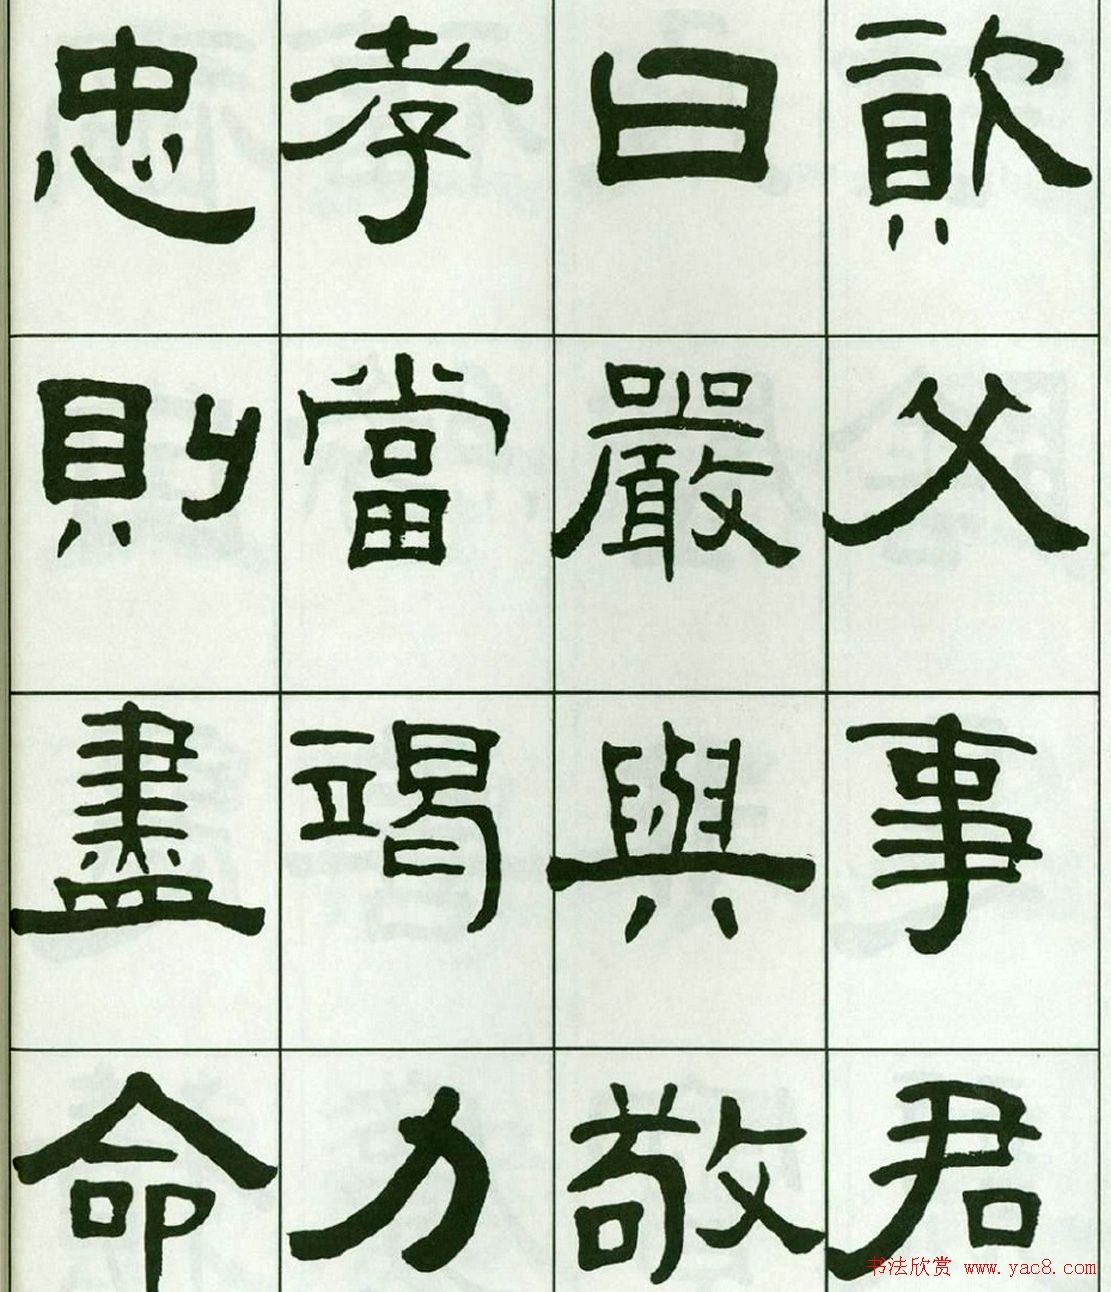 資父事君
曰嚴與敬
孝當竭力
忠則盡命
书法欣赏 www.yac8.com